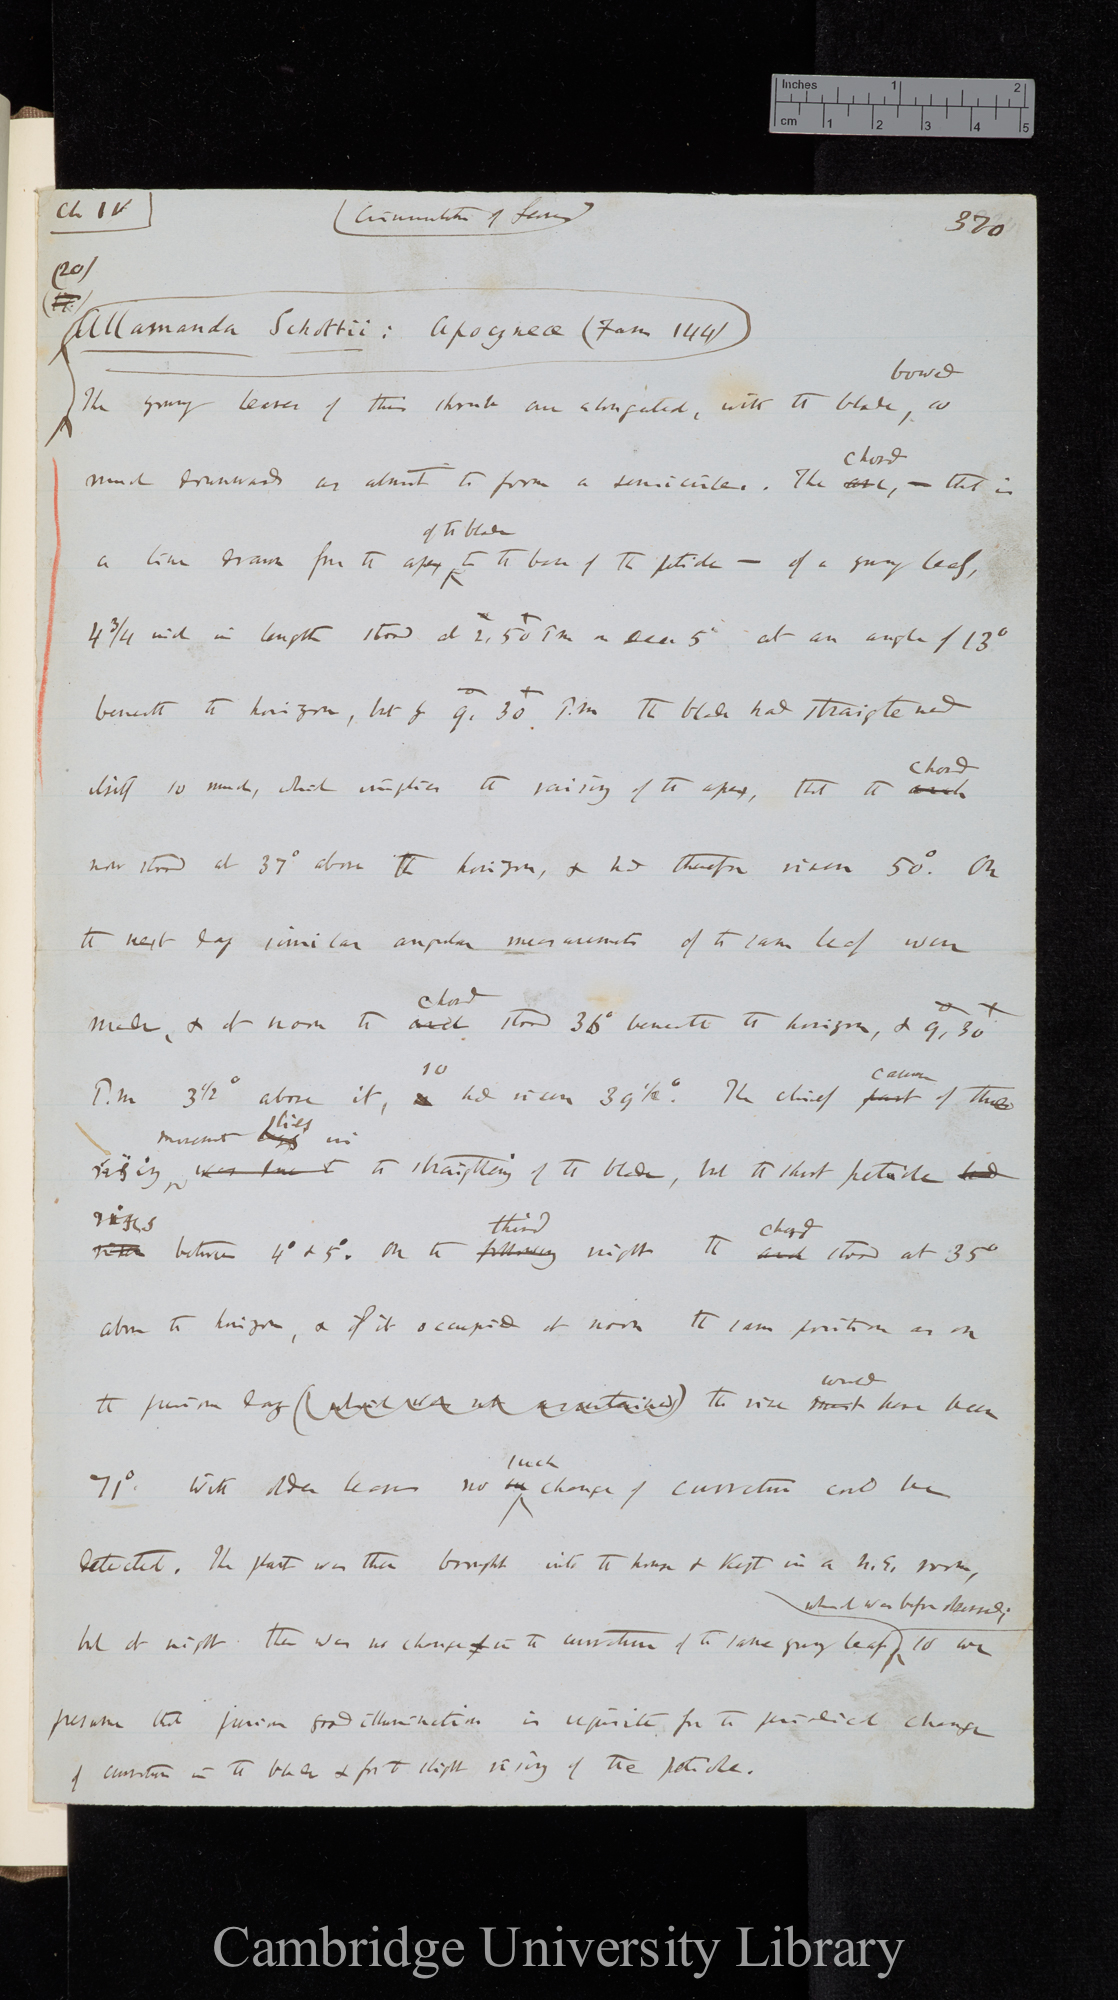 Inches 1 2
cm 1 2 3 4 5
Ch IV
(Circumnutation of Leaves)
370
(20)
Allamanda Schottii: Apocyneæ (Fam 144)
bowed
The young leaves of this shrub are elongated, with the blade, so
chord
much downwards as almost to form a semicircle. The arc, — that is
of the blade
a line drawn from the apex to the base of the petiole — of a young leaf,
4 3/4 inch in length stood at 2, 50 P.m on Dec 5th at an angle of 13°
beneath the horizon, but by 9. 30 P.m the blade had straightened
chord
itself so much, which implies the raising of the apex, that the arch
now stood at 37° above the horizon, & had therefore risen 50°. On
the next day similar angular measurements of the same leaf were
chord
made, & at noon the arch stood 36° beneath the horizon, & 9, 30
so
P.m 3 1/2° above it, & had risen 39 1/2°. The chief part of these
cause
movement lies in
rising was due to the straightening of the blade, but the short petiole had
rises
third
chord
risen between 4° & 5°. On the following night the arch stood at 35°
above the horizon, & if it occupied at noon the same position as on
would
the previous day (which was not ascertained) the rise must have been
such
71°. With older leaves no change of curvature could be
detected. The plant was then brought into the house & kept in a N.E. room,
which was before observed;
but at night there was no change in the curvature of the same young leaf, so we
presume that previous good illumination is requisite for the periodical change
of curvature in the blade & for the slight rising of the petiole.
Cambridge University Library